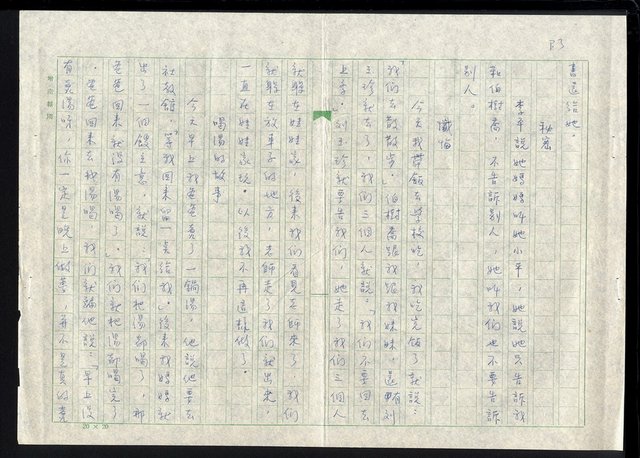 B3
書還給她。
秘密
李平說她媽媽叫她小平，她說她只告訴我
和伯樹喬，不告訴別人，她叫我們也不要告訴
別人。
懺悔
今天我帶飯去學校吃，我吃完飯了就說：
「我們去散散步。」伯樹喬跟我跟我妹妹，還有刘
玉珍就去了，我們三個人就說：「我們不要回去
上學。」刘玉珍就要告我們，她走了我們三個人
就躲在娃娃家，後來我們看見老師來了，我們
就躲在放車子的地方，老師走了我們就出來，
一直在娃娃家玩。以後我不再這樣做了。
喝湯的故事
今天早上我爸爸煮了一鍋湯，他說他要去
社教館，等我回來留一点給我。」後來我媽媽就
出了一個餿主意，就說：「我們把湯都喝了，那
爸爸回來就沒有湯喝了。」我們就把湯都喝完了
。爸爸回來去找湯喝，我們就騙他說：「早上沒
有煮湯呀，你一定是晚上做夢，并不是真的煮
20×20